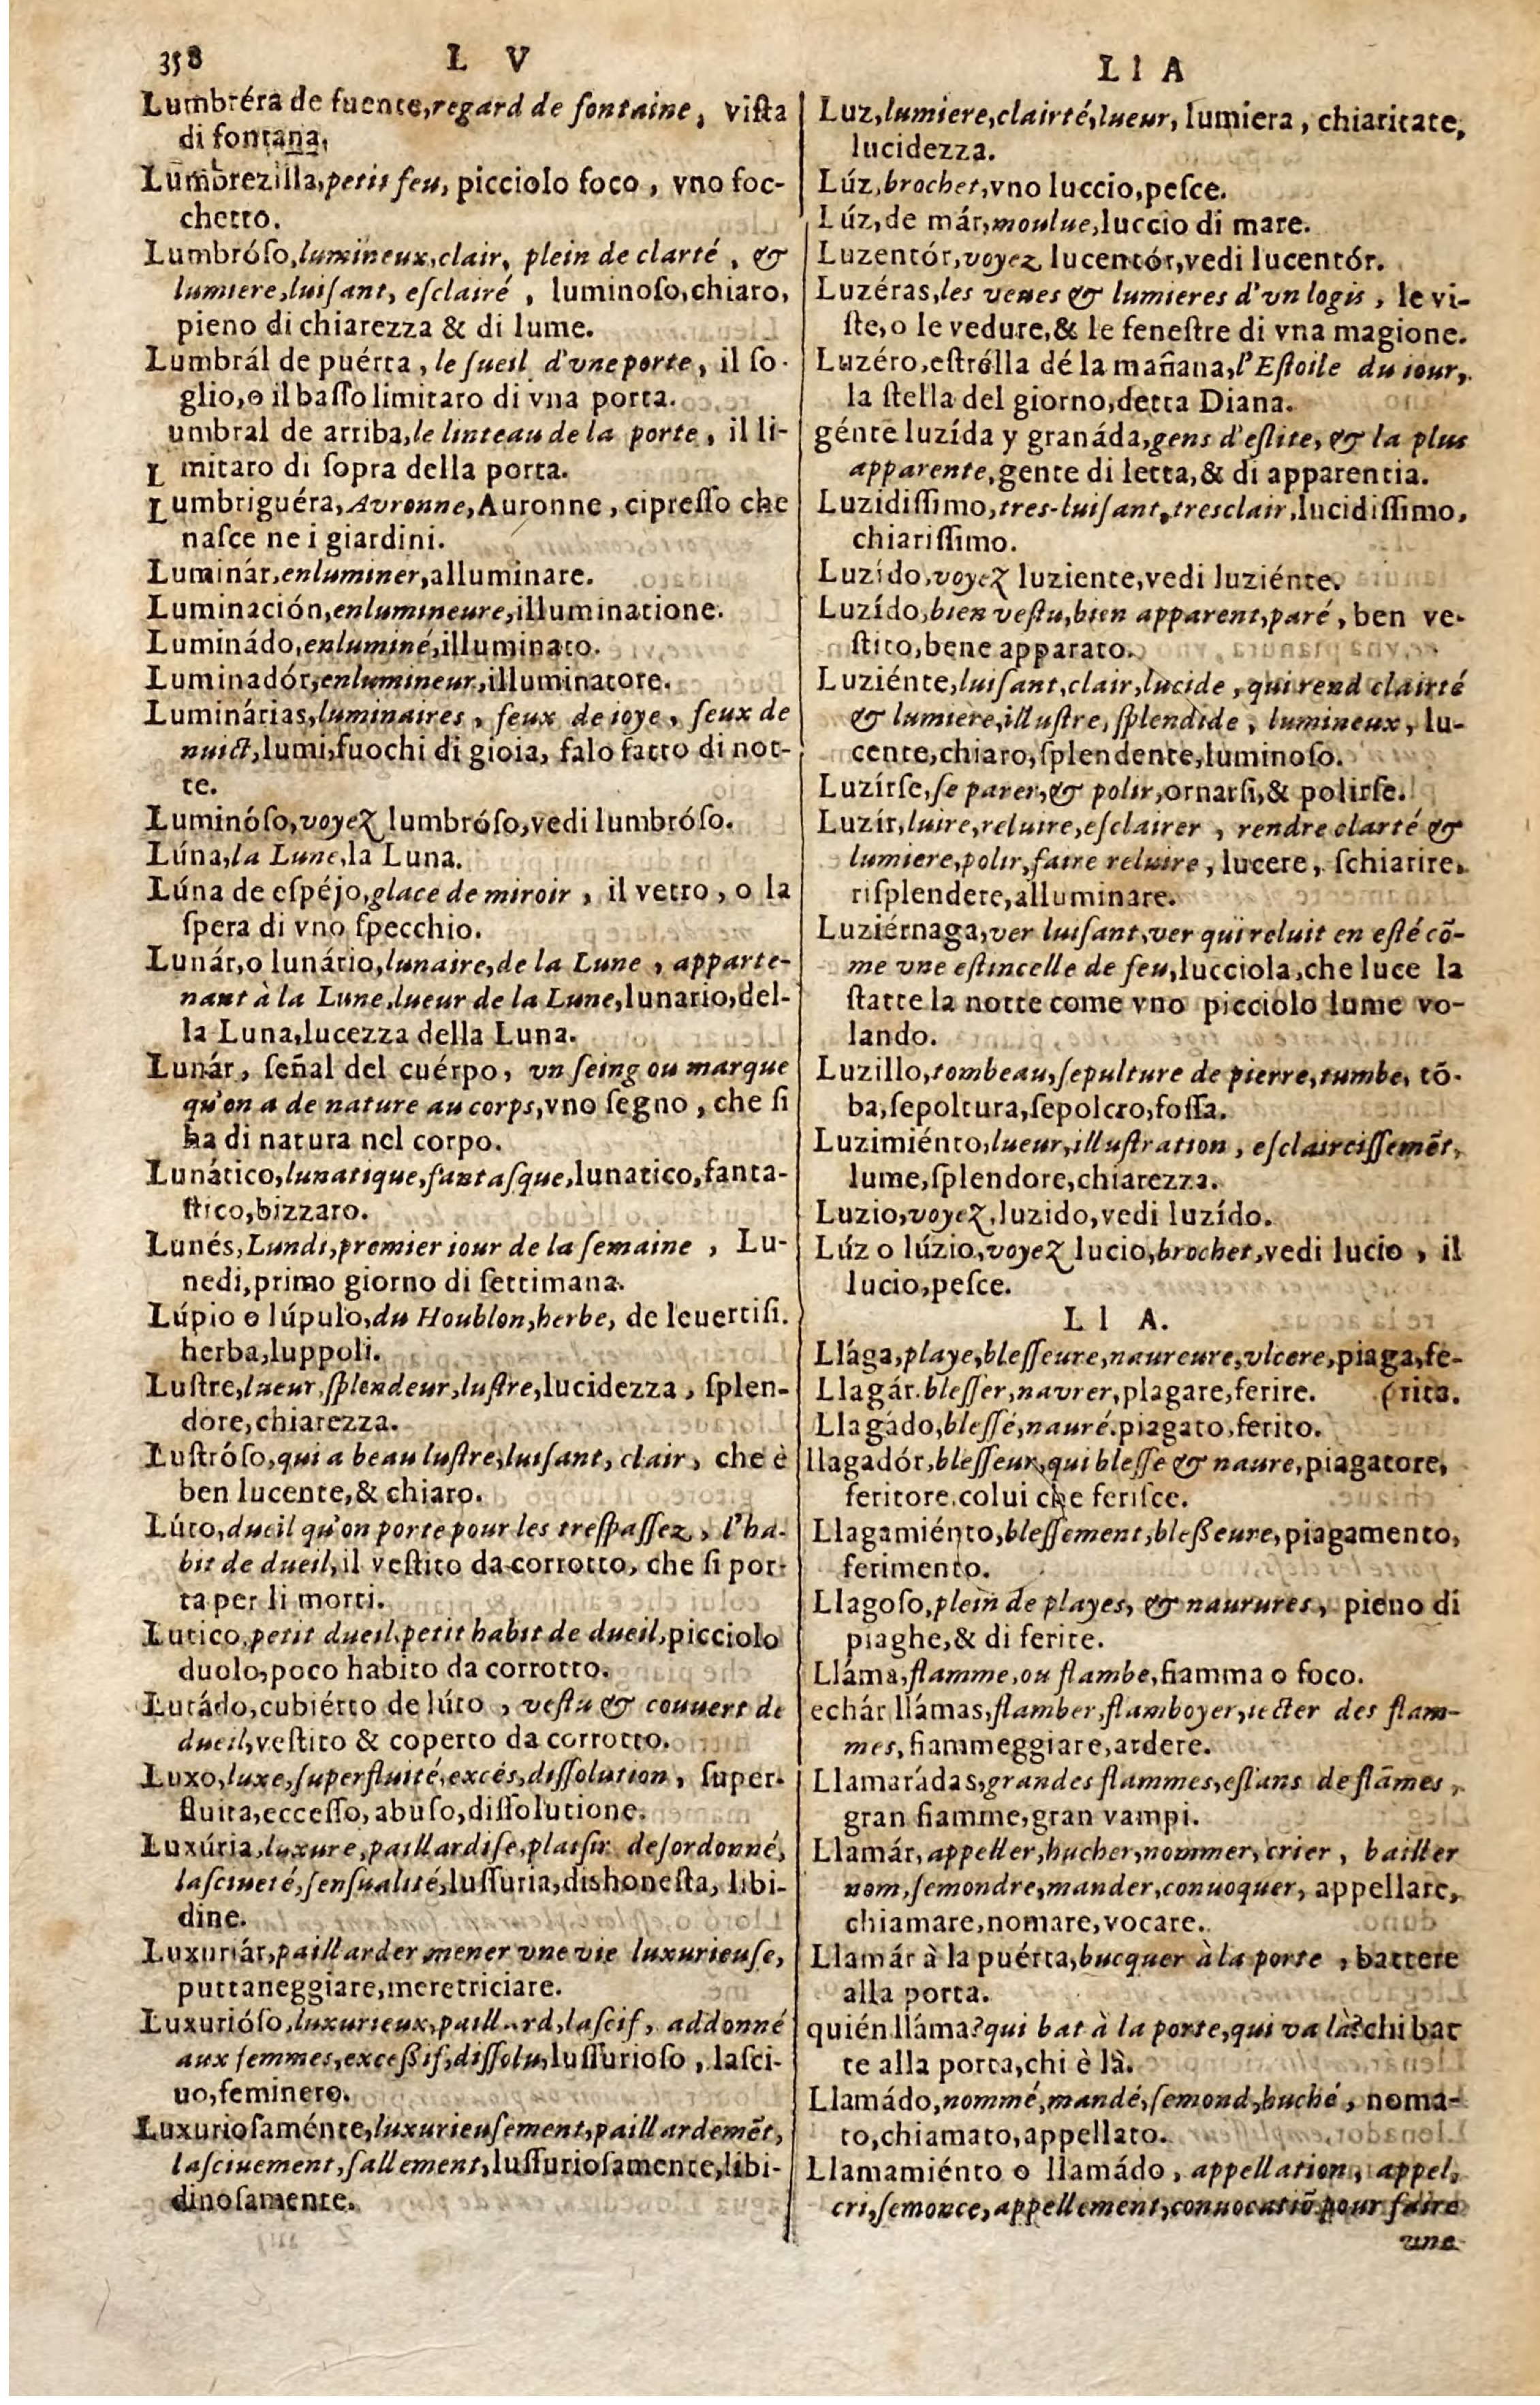 358
L V
Lumbréra de fuente,regard de fontaine, viſta
di fontana,
Lumbrezilla,petit feu, picciolo foco, vno foc-
chetto.
Lumbróſo,lumineux,clair, plein de clarté, &
lumiere,luiſant, eſclairé, luminoſo,chiaro,
pieno di chiarezza & di lume.
Lumbrál de puérta, le ſueil d'vne porte, il ſo-
glio,o il baſſo limitaro di vna porta.
umbral de arriba,le linteau de la porte, il li-
L mitaro di ſopra della porta.
Lumbriguéra,Avronne,Auronne, cipreſſo che
naſce ne i giardini.
Luminár,enluminer,alluminare.
Luminación,enlumineure,illuminatione.
Luminádo,enluminé,illuminato.
Luminadór,enlumineur,illuminatore.
Luminárias,luminaires, feux de ioye, feux de
nuict,lumi,fuochi di gioia, falo fatto di not-
te.
Luminóſo,voyez lumbróſo,vedi lumbróſo.
Lúna,la Lune,la Luna.
Lúna de eſpéjo,glace de miroir, il vetro, o la
ſpera di vno ſpecchio.
Lunár,o lunário,lunaire,de la Lune, apparte-
nant à la Lune,lueur de la Lune,lunario,del-
la Luna,lucezza della Luna.
Lunár, ſeñal del cuérpo, vn ſeing ou marque
qu'on a de nature au corps,vno ſegno, che ſi
ha di natura nel corpo.
Lunático,lunatique,fantaſque,lunatico,fanta-
ſtico,bizzaro.
Lunés,Lundi,premier iour de la ſemaine, Lu-
nedi,primo giorno di ſettimana.
Lúpio o lúpulo,du Houblon,herbe, de leuertiſi.
herba,luppoli.
Luſtre,lueur,ſplendeur,luſtre,lucidezza, ſplen-
dore,chiarezza.
Luſtróſo,qui a beau luſtre,luiſant, clair, che è
ben lucente,& chiaro.
Lúto,dueil qu'on porte pour les treſpaſſez, l'ha-
bit de dueil,il veſtito da corrotto, che ſi por-
ta per li morti.
Lutico,petit dueil,petit habit de dueil,picciolo
duolo,poco habito da corrotto.
Lutádo,cubiérto de lúto, veſtu & couuert de
dueil,veſtito & coperto da corrotto.
Luxo,luxe,ſuperfluité,excés,diſſolution, ſuper-
fluita,ecceſſo,abuſo,diſſolutione.
Luxúria,luxure,paillardiſe,plaiſir deſordonné,
laſciueté,ſenſualité,luſſuria,dishoneſta, libi-
dine.
Luxuriár,paillarder mener vne vie luxurieuſe,
puttaneggiare,meretriciare.
Luxurióſo,luxurieux,paillard,laſcif, addonné
aux femmes,exceßif,diſſolu,luſſurioſo, laſci-
uo,feminero.
Luxurioſaménte,luxurieuſement,paillardemẽt,
laſciuement,ſallement,luſſurioſamente,libi-
dinoſamente.
Ll A
Luz,lumiere,clairté,lueur, lumiera, chiaritate,
lucidezza.
Lúz,brochet,vno luccio,peſce.
Lúz,de már,moulue,luccio di mare.
Luzentór,voyez lucentór,vedi lucentór.
Luzéras,les veues & lumieres d'vn logis, le vi-
ſte,o le vedure,& le feneſtre di vna magione.
Luzéro,eſtrélla dé la mañana,l'Eſtoile du iour,
la ſtella del giorno,detta Diana.
génte luzída y granáda,gens d'eſlite, & la plus
apparente,gente di letta,& di apparentia.
Luzidiſſimo,tres-luiſant,tresclair,lucidiſſimo,
chiariſſimo.
Luzído,voyez luziente,vedi luziénte.
Luzído,bien veſtu,bien apparent,paré, ben ve-
ſtito,bene apparato.
Luziénte,luiſant,clair,lucide, qui rend clairté
& lumiere,illuſtre,ſplendide, lumineux, lu-
cente,chiaro,ſplendente,luminoſo.
Luzírſe,ſe parer,& polir,ornarſi,& polirſe.
Luzír,luire,reluire,eſclairer, rendre clarté &
lumiere,polir,faire reluire, lucere, ſchiarire,
riſplendere,alluminare.
Luziérnaga,ver luiſant,ver qui reluit en eſté cõ-
me vne eſtincelle de feu,lucciola,che luce la
ſtatte la notte come vno picciolo lume vo-
lando.
Luzillo,tombeau,ſepulture de pierre,tumbe, tõ-
ba,ſepoltura,ſepolcro,foſſa.
Luzimiénto,lueur,illuſtration, eſclairciſſemẽt,
lume,ſplendore,chiarezza.
Luzio,voyez,luzido,vedi luzído.
Lúz o lúzio,voyez lucio,brochet,vedi lucio, il
lucio,peſce.
Ll A.
Llága,playe,bleſſeure,naureure,vlcere,piaga,fe-
Llagár.bleſſer,navrer,plagare,ferire. (rita.
Llagádo,bleſſé,nauré.piagato,ferito.
llagadór,bleſſeur,qui bleſſe & naure,piagatore,
feritore.colui che feriſce.
Llagamiénto,bleſſement,bleßeure,piagamento,
ferimento.
Llagoſo,plein de playes, & naurures, pieno di
piaghe,& di ferite.
Lláma,flamme,ou flambe,fiamma o foco.
echár llámas,flamber,flamboyer,iecter des flam-
mes,fiammeggiare,ardere.
Llamarádas,grandes flammes,eſlans de flãmes,
gran fiamme,gran vampi.
Llamár,appeller,hucher,nommer,crier, bailler
nom,ſemondre,mander,conuoquer, appellare,
chiamare,nomare,vocare.
Llamár à la puérta,bucquer à la porte, battere
alla porta.
quién lláma?qui bat à la porte,qui va là?chi bat
te alla porta,chi è là.
Llamádo,nommé,mandé,ſemond,huché, noma-
to,chiamato,appellato.
Llamamiénto o llamádo, appellation, appel,
cri,ſemonce,appellement,conuocatiõ pour faire
vne